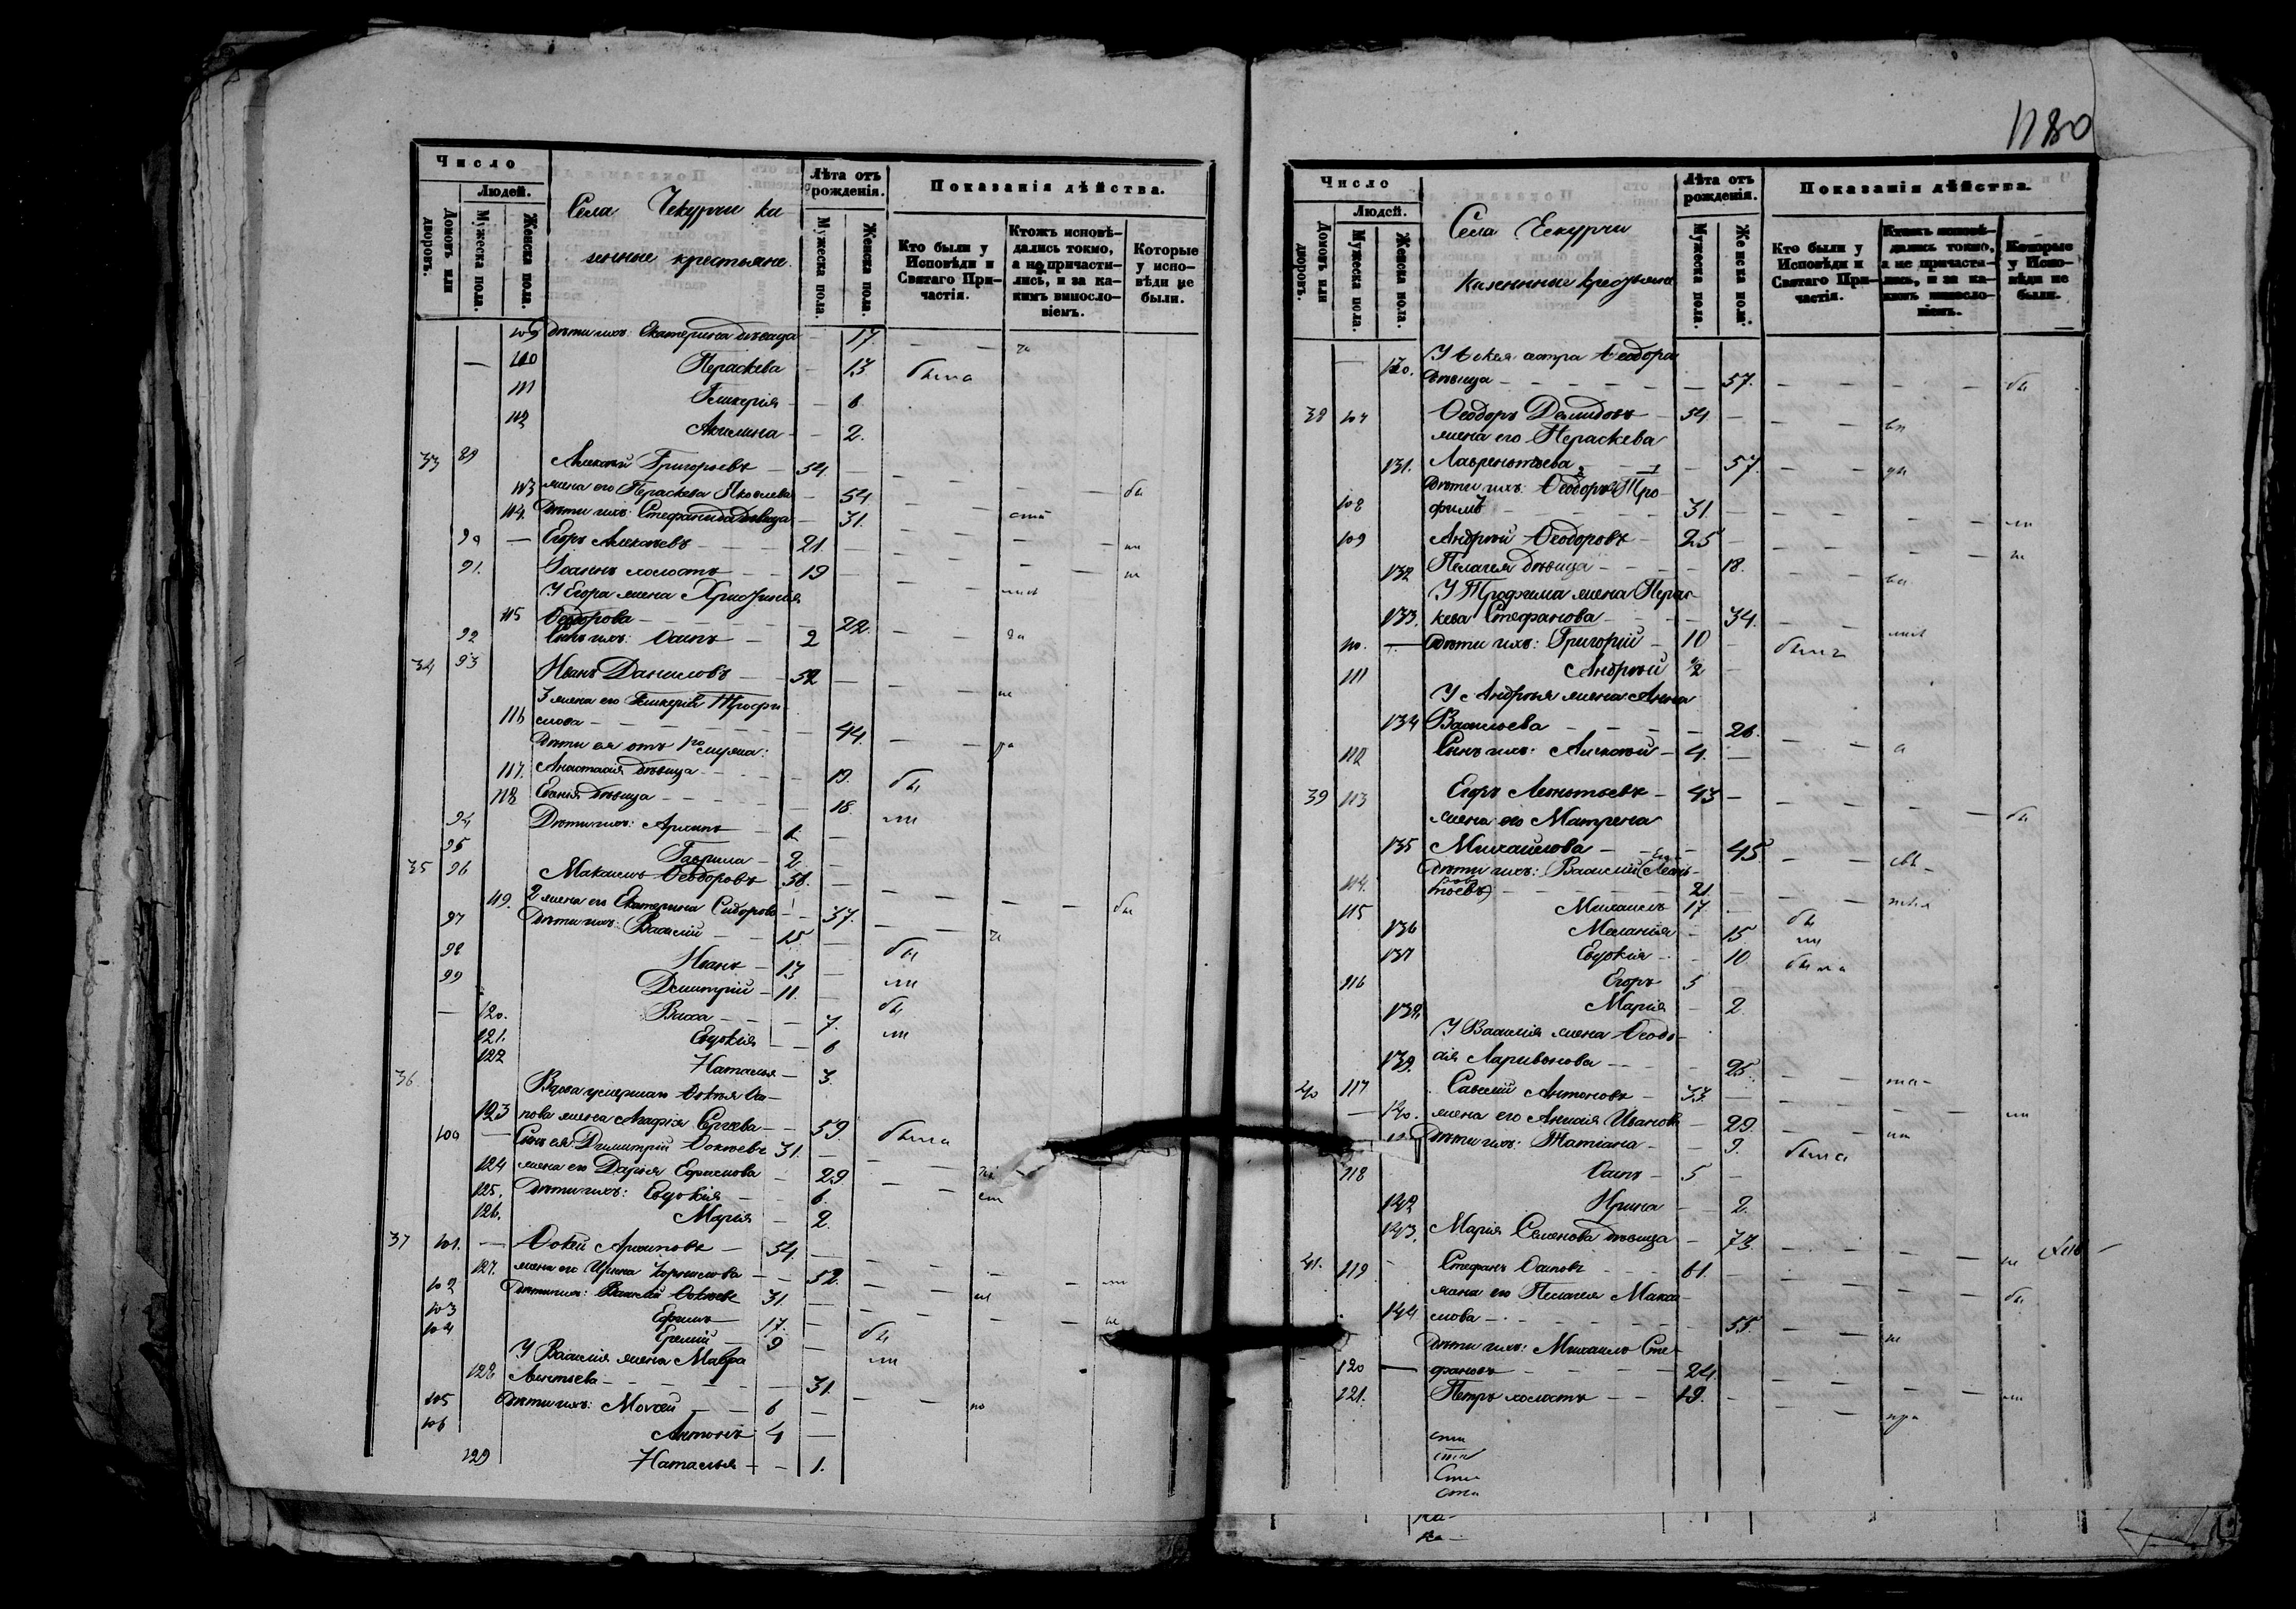 1180
Число
Людей.
Домовъ или дворовъ.
Мужеска пола.
Женска пола.
Села Чекурчи ка-
зенные крестьяне.
Лѣта отъ рожденія.
Мужеска пола.
Женска пола.
Показанія дѣйства.
Кто были у Исповѣди и Святаго При-частія.
Ктожъ исповѣ-дались токмо, а не причасти-лись, и за ка-кимъ винасло-віемъ.
Которые у испо-вѣди не были.
109 Дѣти ихъ: Екатерина дѣвица 17.
110 Параскева 13 была
111 Гликерія 6
112 Акилина 2.
33 89 Алексѣй Григорьевъ 54
113 жена его Параскева Яковлева 54 бы
114. Дѣти ихъ: Стефанида дѣвица 31.
90 Егоръ Алексѣевъ 21
91. Іоаннъ холостъ 19
У Егора жена Христинія
115 Ѳеодорова 22.
92 Сынъ ихъ: Осипъ 2
34 93 Иванъ Даниловъ 52
3 жена его Гликерія Трофи
116 мова 44.
Дѣти ея отъ 1го мужа:
117. Анастасія дѣвица 19. бы
118 Евгенія дѣвица 18. ли
94 Дѣти ихъ: Архипъ 6.
95 Гаврила 2
35 96 Максимъ Ѳеодоровъ 58.
119. 2 жена его Екатерина Сидорова 37. бы
97 Дѣти ихъ: Василій 15
98 Иванъ 13 бы
99 Димитрій 11. ли
120. Васса 7. бы
121. Евдокія 6 ли
122 Наталья 3.
36 Вдова умершаго Ѳокея Оси-
123 пова жена Агафія Сергѣева 59. была
100 Сынъ ея Димитрій Ѳокѣевъ 31.
124 жена его Дарія Ефимова 29
125. Дѣти ихъ: Евдокія 6.
126. Марія 2.
37 101. Ѳокей Архиповъ 54.
127. жена его Ирина Корнилова 52.
102 Дѣти ихъ: Василій Ѳокѣевъ 31.
103 Ефимъ 17.
104 Еремій 9 бы
У Василія жена Мавра ли
128 Леонтьева 31.
105 Дѣти ихъ: Моѵсей 6
106 Антонъ 4
129 Наталья 1.
Число
Людей.
Домовъ или дворовъ.
Мужеска пола.
Женска пола.
Села Чекурчи
казенные крестьяне
Лѣта отъ рожденія.
Мужеска пола.
Женска пола.
Показанія дѣйства.
Кто были у Исповѣди и Святаго При-частія.
Ктожъ исповѣ-дались токмо, а не причасти-лись, и за ка-кимъ винасло-віемъ.
Которые у Испо-вѣди не были.
130. У Ѳокея сестра Ѳеодора
дѣвица 57. бы
38 107 Ѳеодоръ Демидовъ 54
жена его Параскева
131. Лаврентьева 57.
Дѣти ихъ: Ѳеодоръ Тро-
108 фимъ 31. ли
109 Андрей Ѳеодоровъ 25
132 Пелагея дѣвица 18.
У Трофима жена Парас-
133. кева Стефанова 34.
110. Дѣти ихъ: Григорій 10 была
111 Андрей 1/2
У Андрея жена Анна
134 Васильева 26.
112 Сынъ ихъ: Алексѣй 4.
39 113 Егоръ Леонтьевъ 43 бы
жена его Матрена
135 Михайлова 45
Дѣти ихъ: Василій (Леон-
114. тьевъ) 21
115 Михаилъ 17. бы
136 Меланія 15. ли
137 Евдокія 10 была
116 Егоръ 5
138. Марія 2
У Василія жена Ѳеодо-
139. сія Ларивонова 25.
40 117 Савелій Антоновъ 33. ли
140. жена его Анисія Иванов 29.
Дѣти ихъ: Татіана 9. была
118 Осипъ 5
142 Ирина 2.
143. Марія Семенова дѣвица 73.
41. 119 Стефанъ Осиповъ 61. бы
жена его Пелагея Макси-
144 мова 55.
Дѣти ихъ: Михаилъ Сте-
120 фановъ 24. ли
121. Петръ холостъ 19.